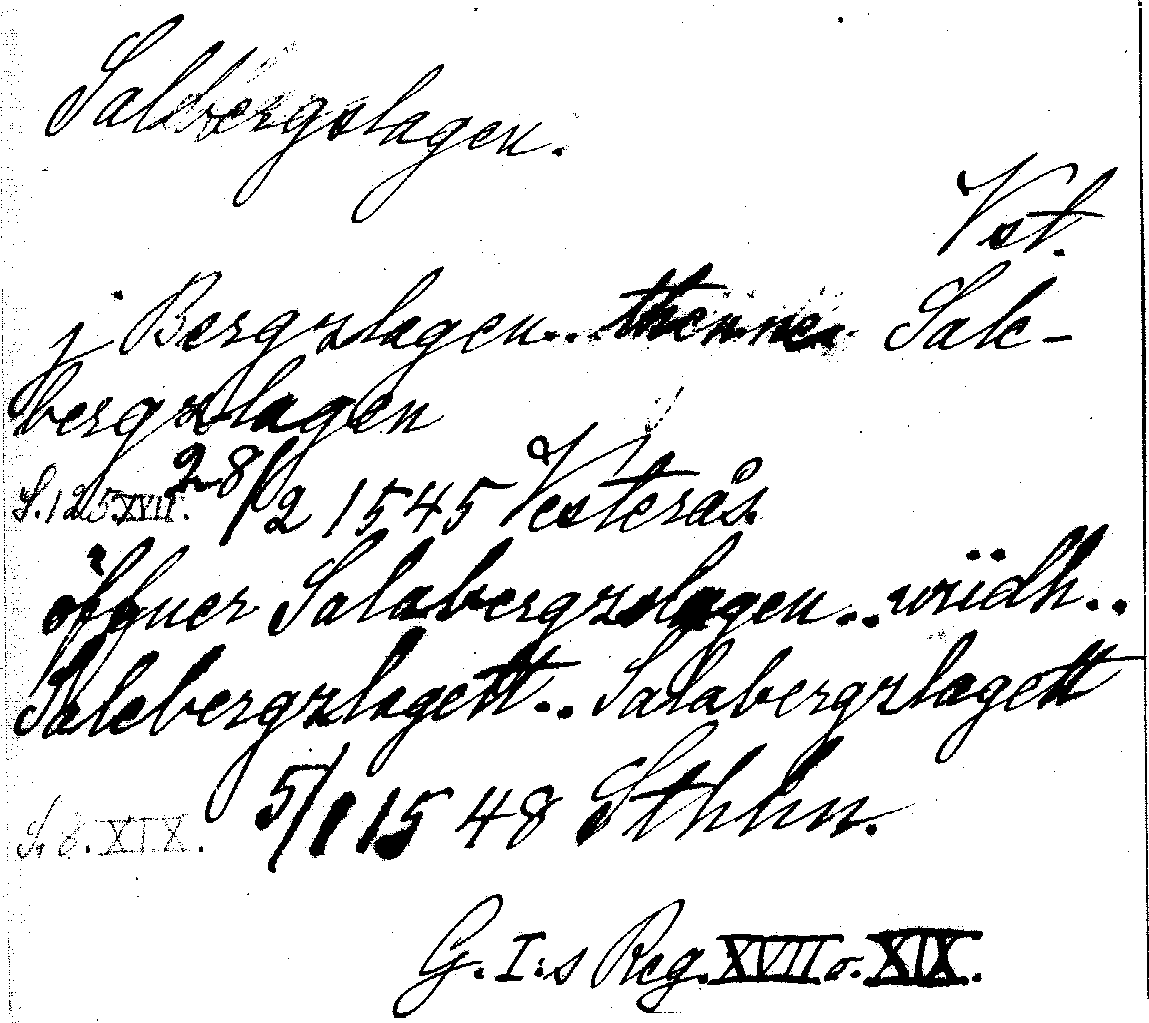 Salbergslagen.
Vst.
j Bergzlagen.. thenne Sale-
bergzslagen
S. 125 XVII. 28/2 1545 Vesterås.
öffuer Salabergzslagen.. widh..
Salebergzlagett.. Salabergzlagett
S. 6. XIX. 5/1 1548 Sthlm.
G. I:s Reg. XVII o. XIX.